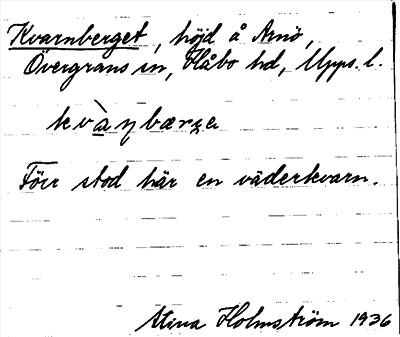 Kvarnberget, höjd å Arnö,
Övergrans sn, Håbo hd, Upps. l.
kvàṇbærge
Förr stod här en väderkvarn.
Stina Holmström 1936